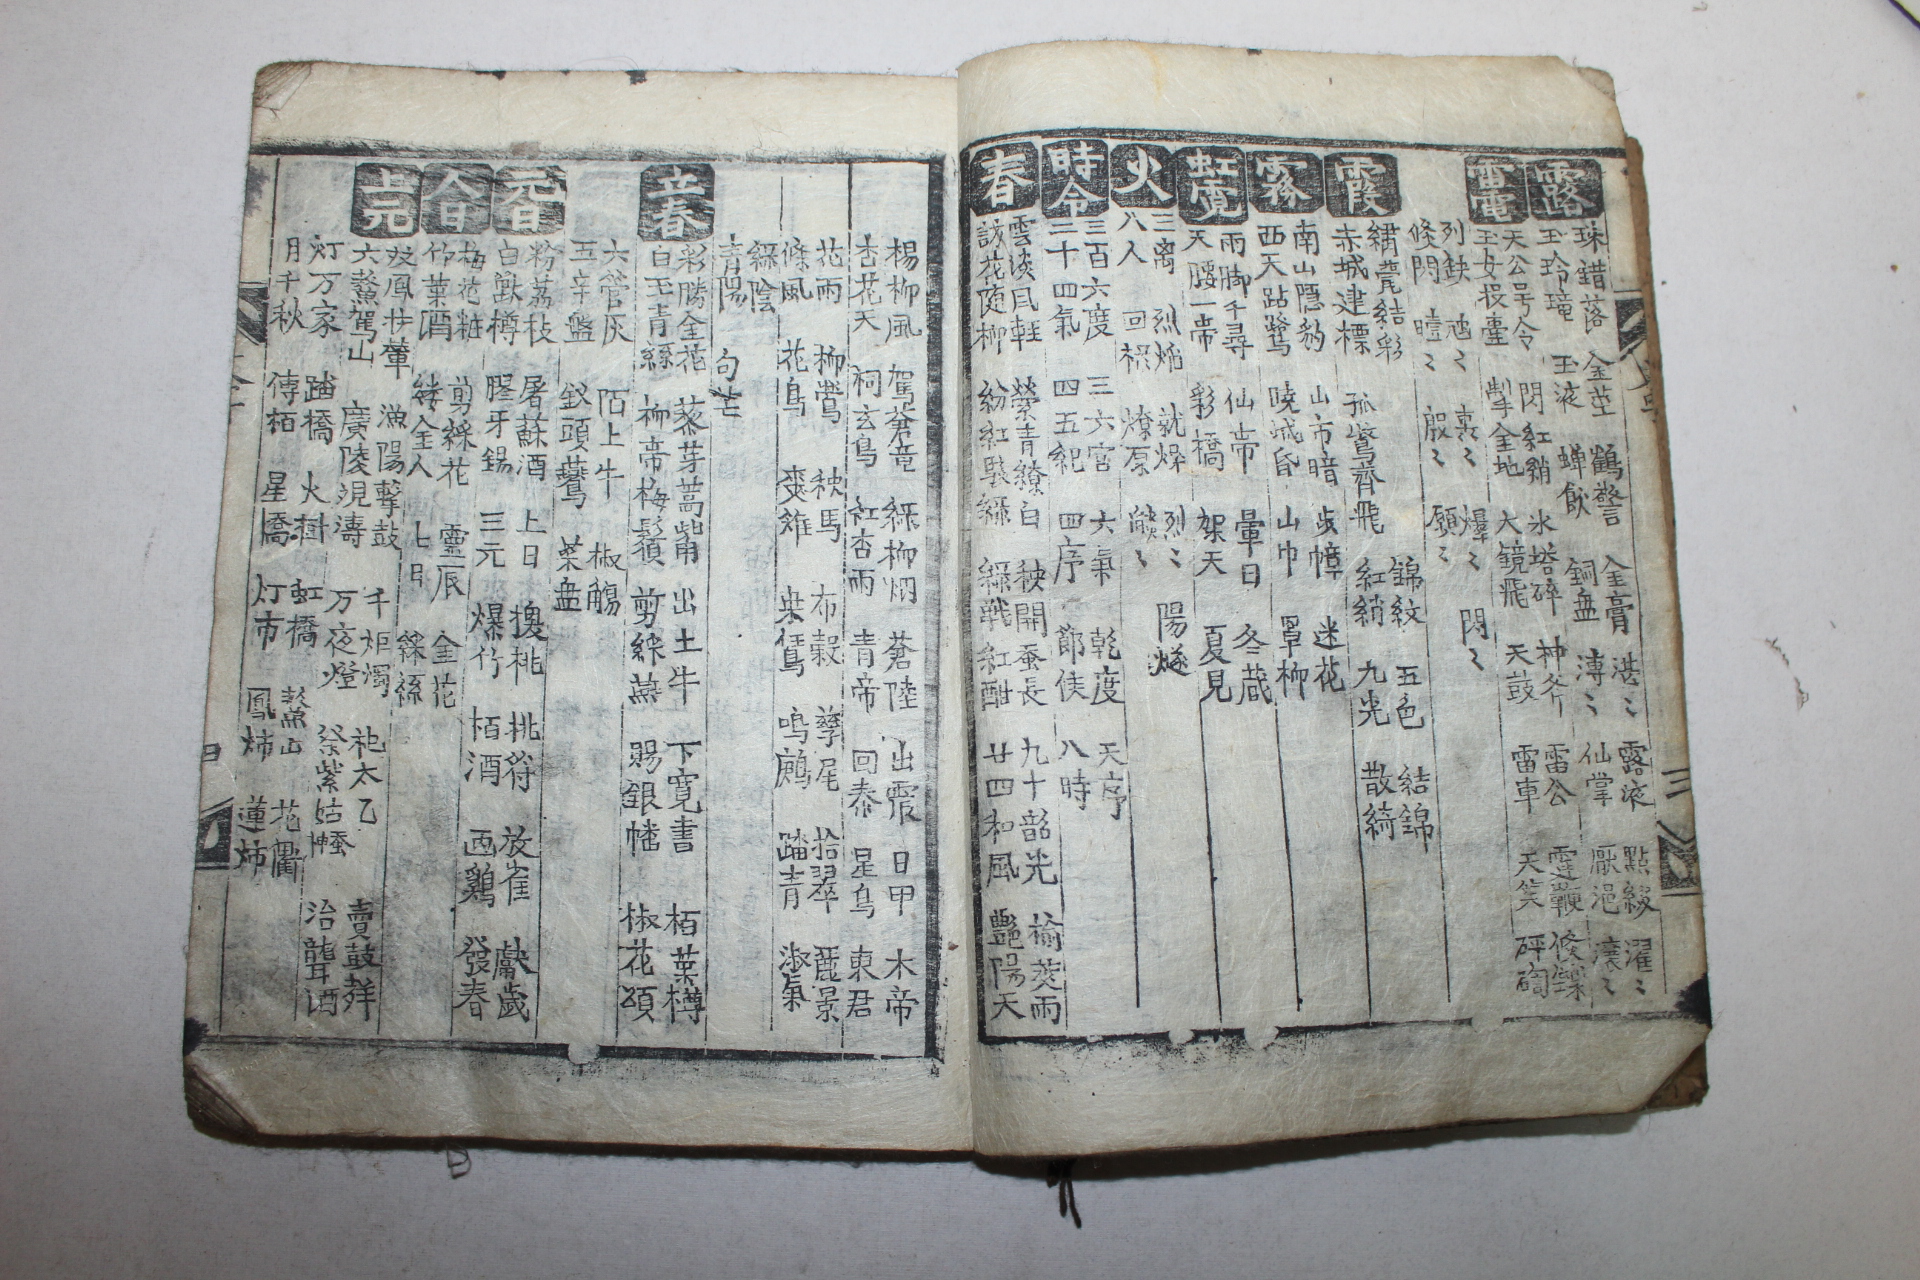 露
珠錯落 金莖 鶴警 金膏 湛〻 露液 點綴 濯〻
玉玲瓏 玉液 蟬飮 銅盘 漙〻 仙掌 厭浥 瀼〻
雷電
天公号令 閃紅綃 氷塔碎 神斧 雷公
玉女投壷 掣金地 大鏡飛 天鼓 雷車 天笑 砰
列缺 虺〻 轟〻 爆〻 閃〻
倐閃 曀〻 殷〻 願〻
霞
繡甍結彩 錦紋 五色 結錦
赤城建標 孤鶩齊飛 紅綃 九光 散綺
霧
南山隱豹 山市暗 迷花
西天跕鷺 曉城昏 山巾 罩柳
虹霓
雨脚千尋 仙帝 暈日 冬蔵
天腰一帶 彩橋 架天 夏見
火
三离 烈焔 就燥 烈〻 陽燧
八人 回祿 燎原 〻
時令
三百六度 三六宮 六氣 乾度 天序
二十四氣 四五紀 四序 節候 八時
春
雲淡风軽 縈青繚白 秧開蚕長 九十韶光 榆莢雨
訪花随柳 紛紅駭綠 綠戰紅酣 廿四和風 艶陽天
楊柳風 駕蒼竜 綠柳烟 蒼陸 出震 日甲 木帝
杏花天 祠玄鳥 紅杏雨 青帝 回泰 星鳥 東君
花雨 柳鶯 秧馬 布穀 孳尾 拾翠 麗景
條風 花鳥 桒雉 桒鳸 鳴鳸 踏青 淑氣
綠陰
青陽 句芒
立春
彩勝金花 蓼芽蒿 出土牛 下寬書 栢葉樽
白玉青絲 柳帶梅鬚 剪綵燕 賜銀幡 椒花頌
六管灰 陌上牛 椒觴
五辛盤 釵頭鷰 菜盘
元日
粉荔枝 屠蘇酒 上日 挑 桃符 放雀 獻歲
白獸樽 膠牙錫 三元 爆竹 栢酒 画鷄 發春
人日
梅花粧 剪綵花 靈辰 金花
竹葉酒 縷金人 七日 綵絲
上元
双鳳扶輦 漁陽擊鼓 千炬濁 祀太乙 賣鼓
六鰲駕山 廣陵規濤 万夜燈 祭紫姑神 治聾酒
灯万家 踏橋 火樹 虹橋 鰲山 花衢
月千秋 傳柑 星橋 灯市 鳳柿 蓮柿
三
四